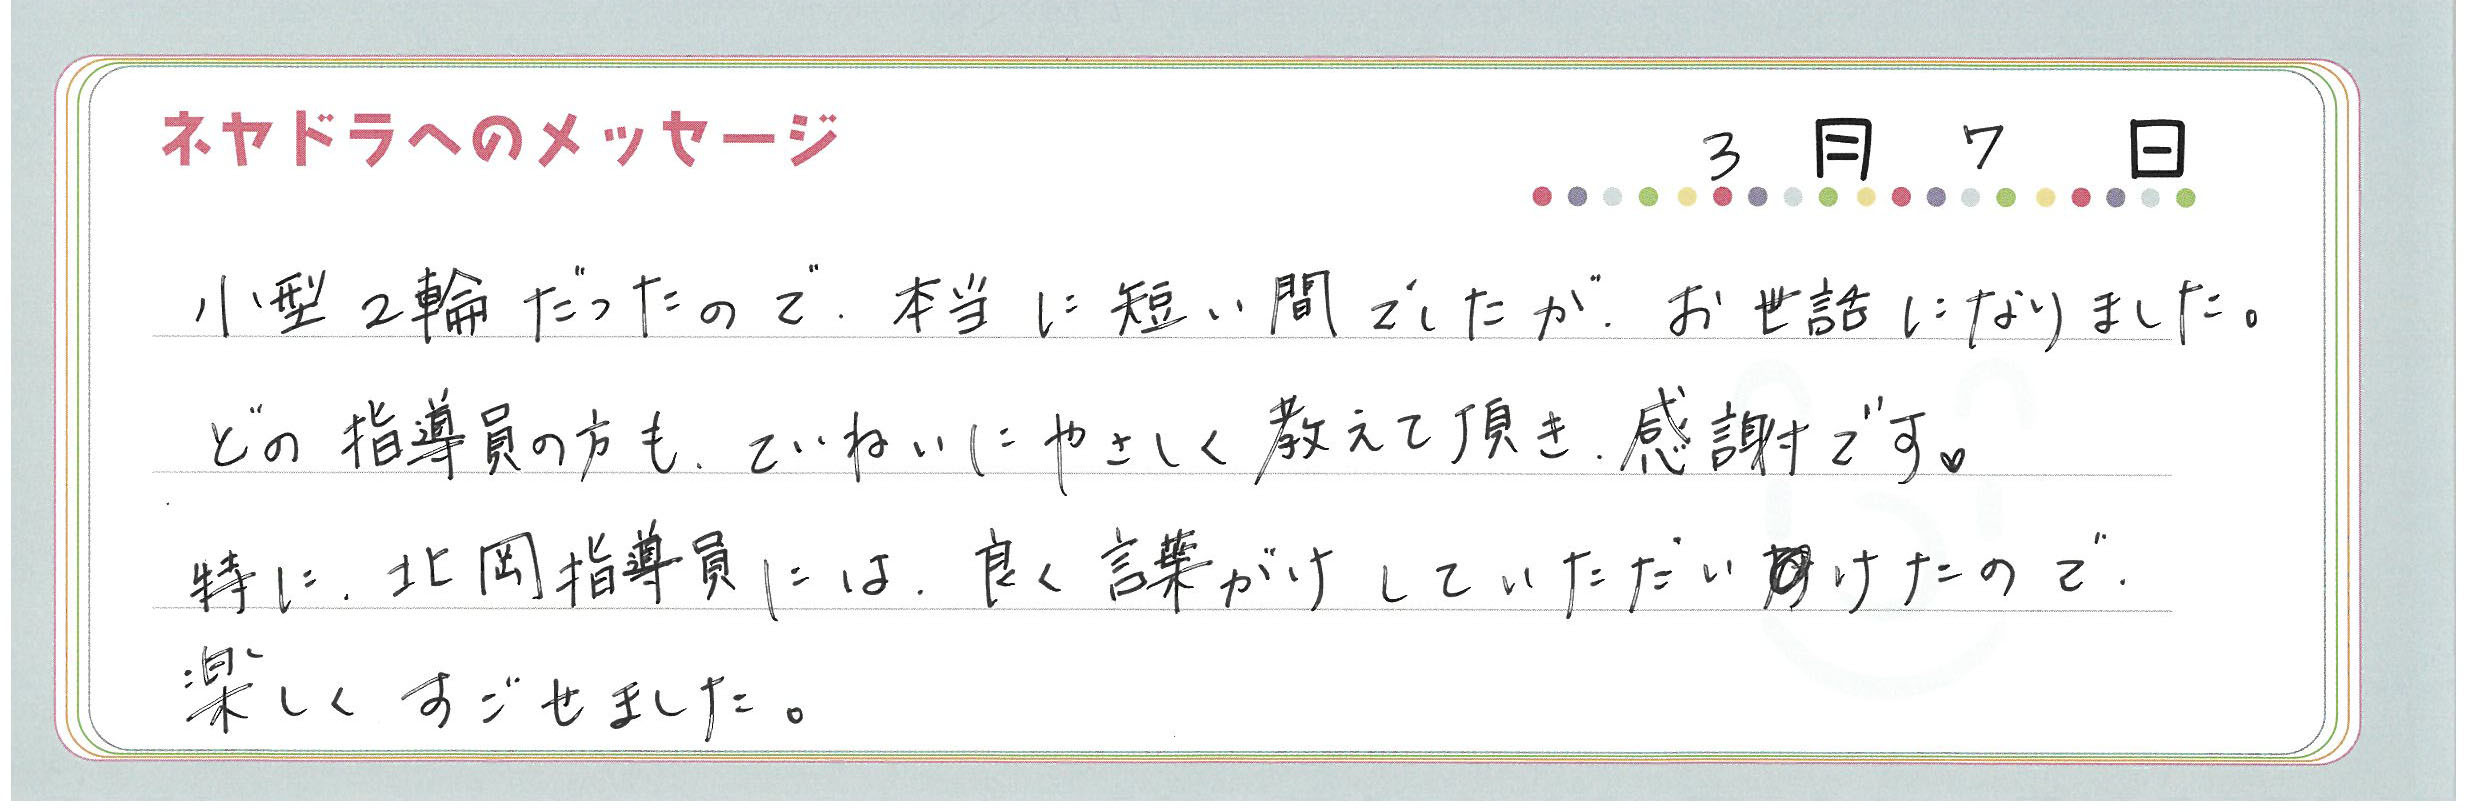 ネヤドラへのメッセージ
3月7日
小型2輪だったので、本当に短い間でしたが、お世話になりました。
どの指導員の方も、ていねいにやさしく教えて頂き、感謝です♡
特に、北岡指導員には、良く言葉がけしていただいけたので、
楽しくすごせました。